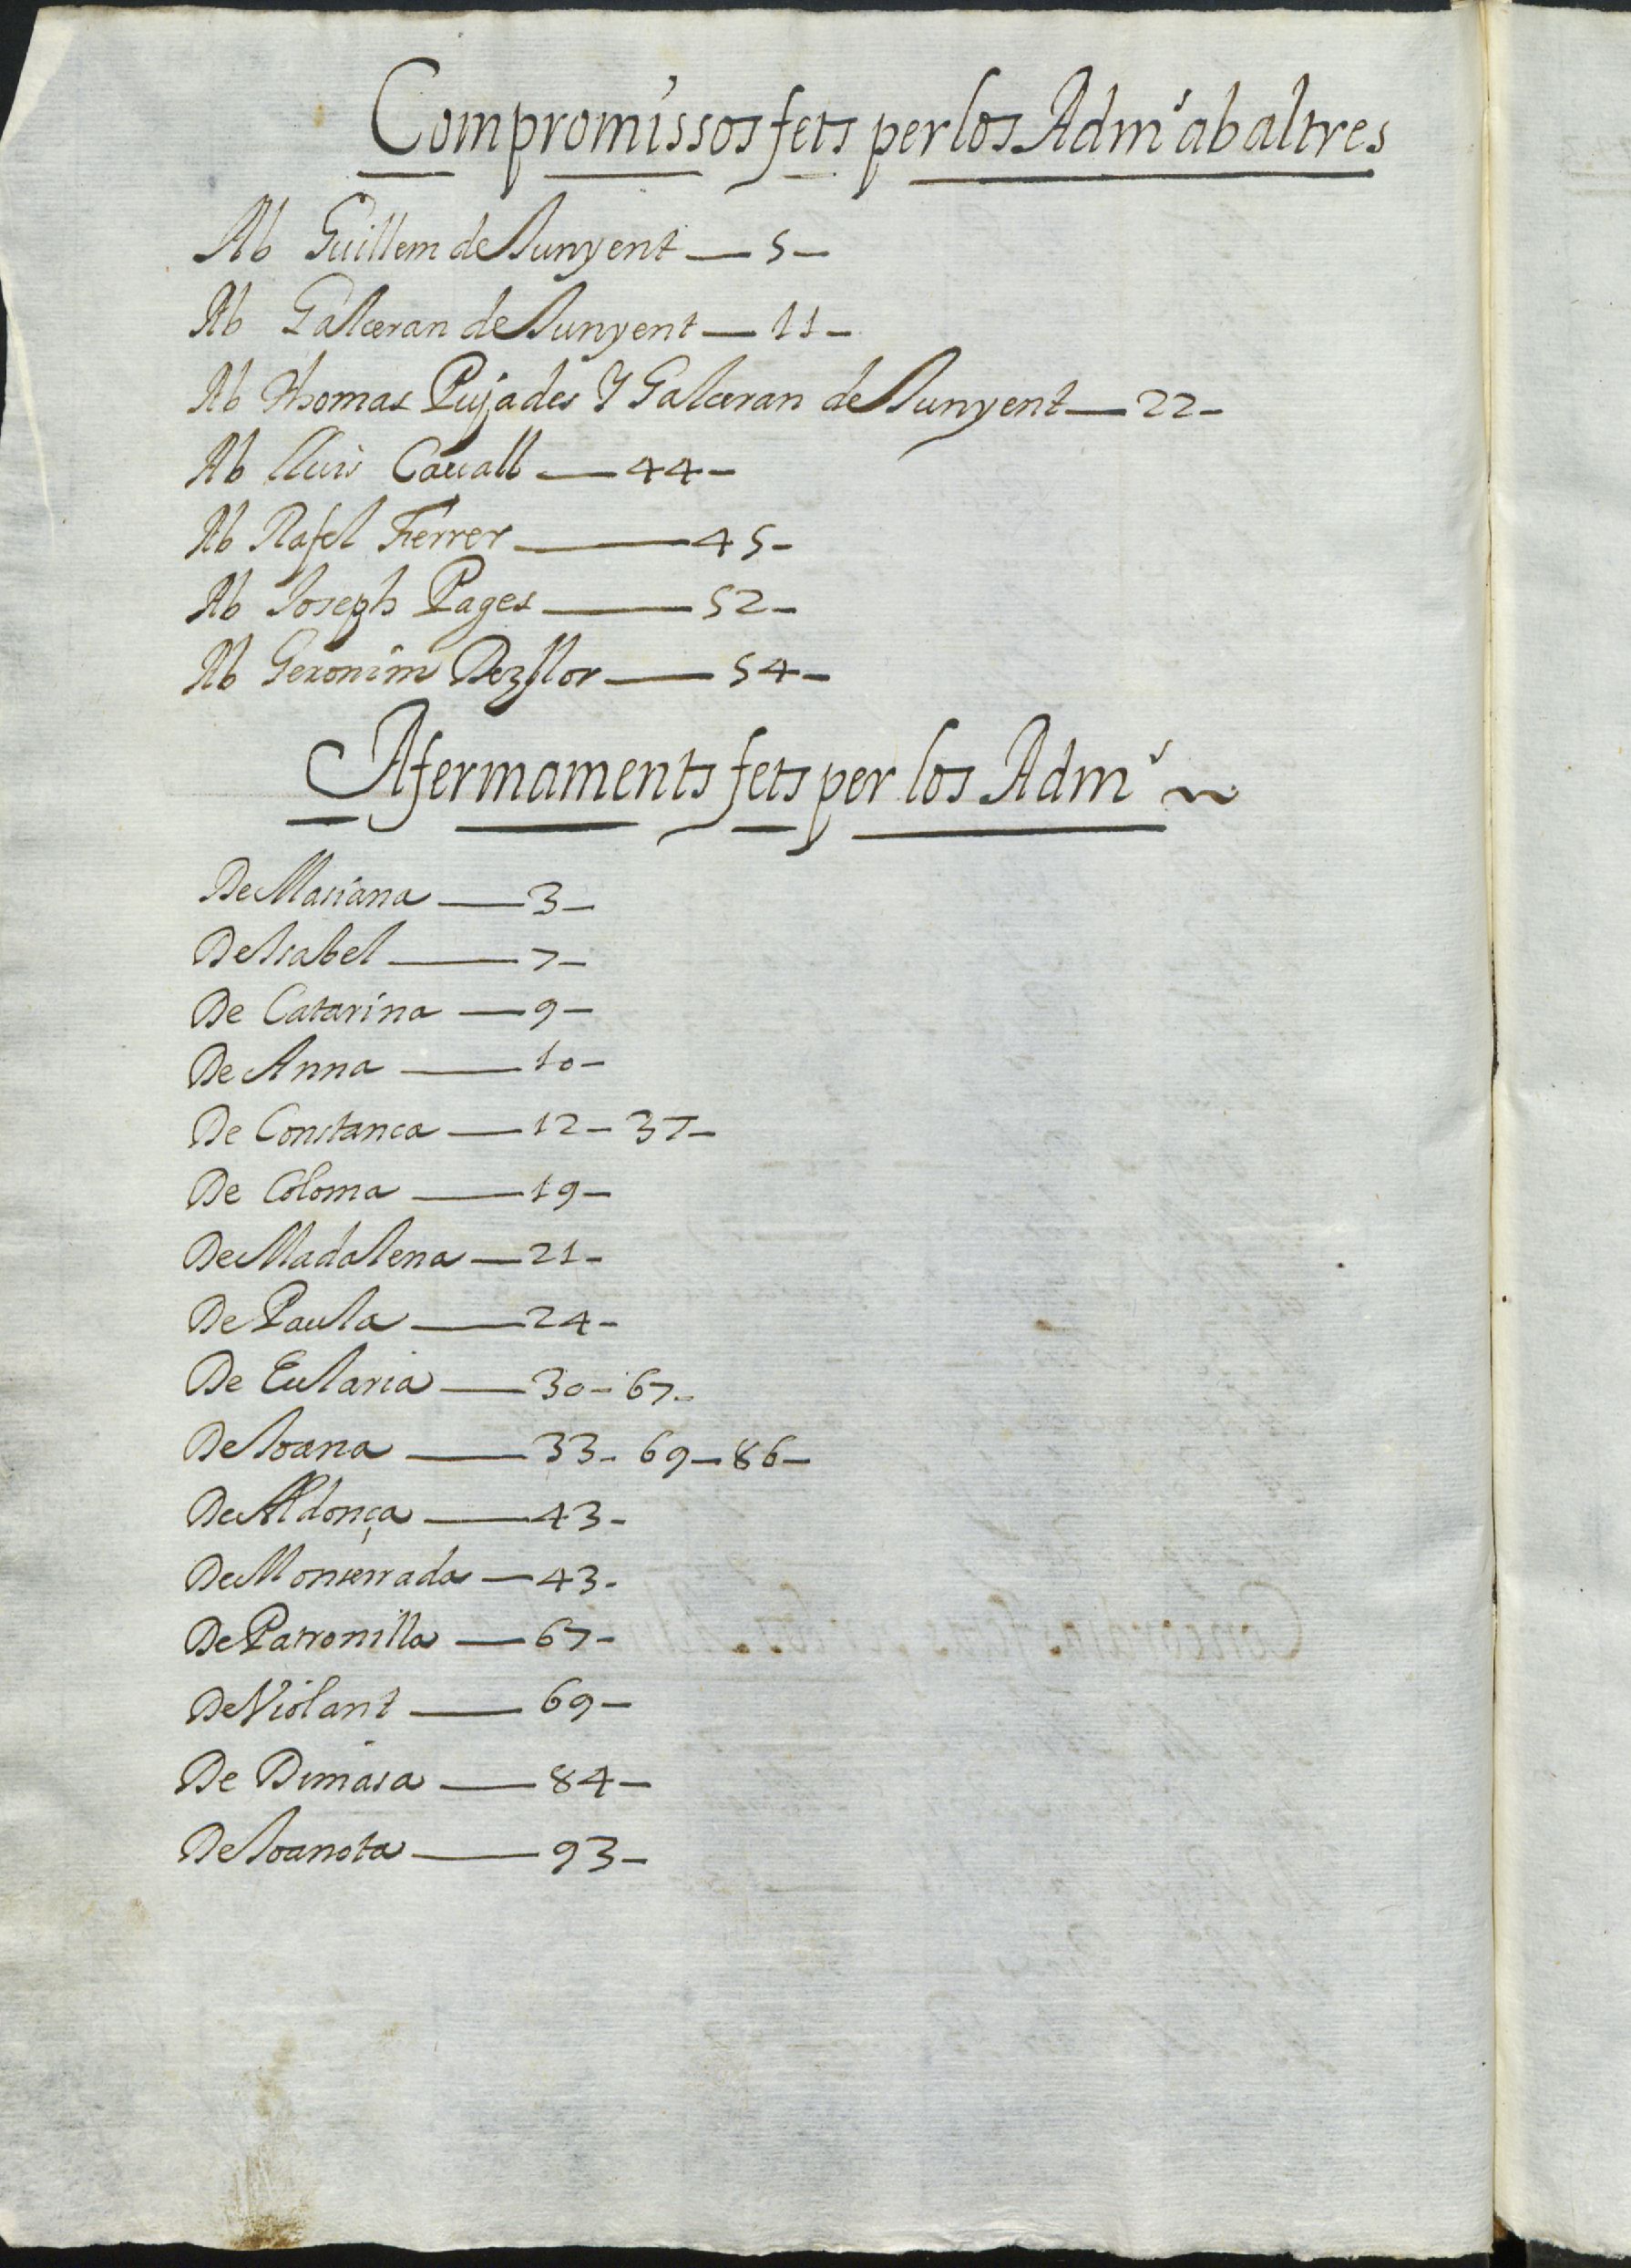 Compromissos fets per los Adm.s ab altres
Ab Guillem de Sunyent — 5 —
Ab Galceran de Sunyent — 11 —
Ab Thomas Pujades Y Galceran de Sunyent — 22 —
Ab Lluis Cauall — 44 —
Ab Rafel Ferrer — 45 —
Ab Joseph Pages — 52 —
Ab Geronim Dezllor — 54 —
Afermaments fets per los Adm.s
De Mariana — 3 —
De Isabel — 7 —
De Catarina — 9 —
De Anna — 10 —
De Constanca — 12 — 37 —
De Coloma — 19 —
De Madalena — 21 —
De Paula — 24 —
De Eularia — 30 — 67 —
De Joana — 33 — 69 — 86 —
De Aldonça — 43 —
De Monserrada — 43 —
De Patronilla — 67 —
De Violant — 69 —
De Dimasa — 84 —
De Joanota — 93 —